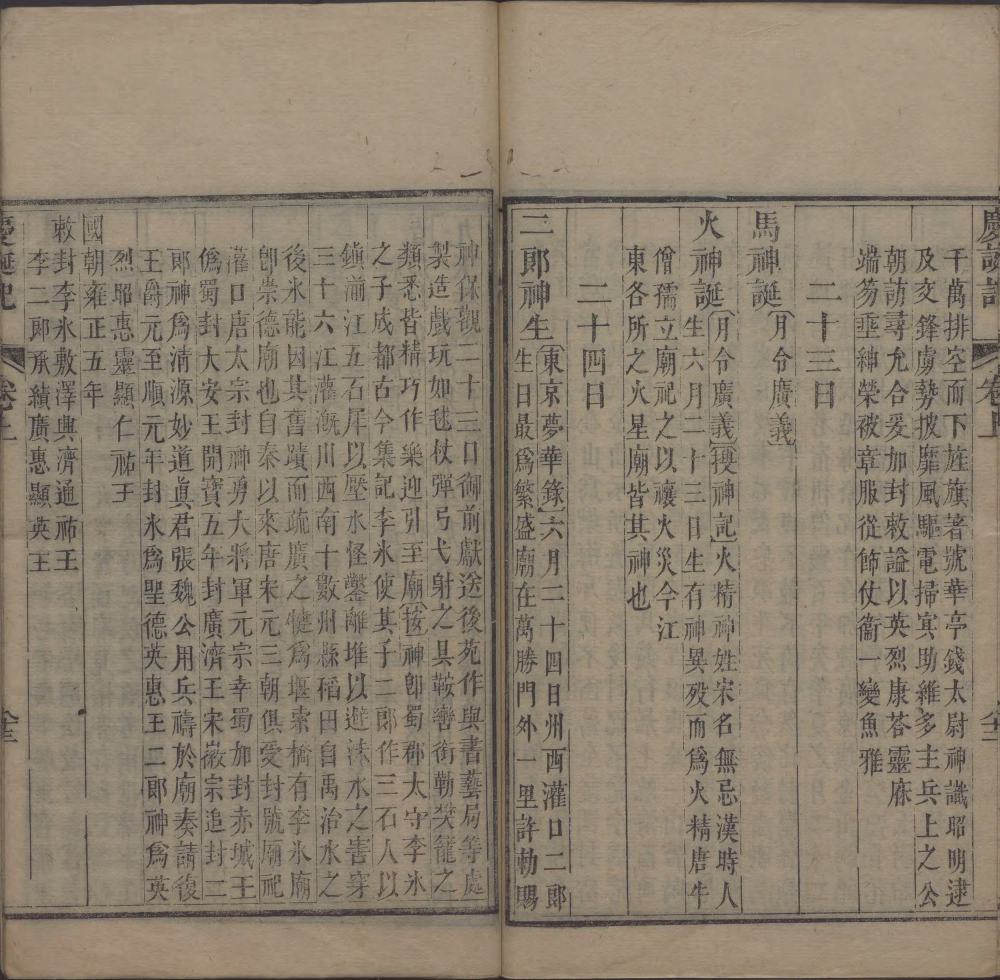 慶誕記 卷上
千萬排空而下旌旗著號華亭錢太尉神識昭明逮
及交鋒虜勢披靡風驅電掃冥助維多主兵上之公
朝訪尋允合爰加封敕謚以英烈康荅靈庥
端笏垂紳榮被章服從飾仗衞一變魚雅
二十三日
馬神誕 月令廣義
火神誕 月令廣義 搜神記 火精神姓宋名無忌漢時人
生六月二十三日生有神異歿而爲火精唐牛
僧孺立廟祀之以禳火災今江
東各所之火星廟皆其神也
二十四日
二郎神生 東京夢華錄 六月二十四日州西灌口二郎
生日最爲繁盛廟在萬勝門外一里許勅賜
神保觀二十三日御前獻送後苑作與書藝局等處
製造戲玩如毬杖彈弓弋射之具鞍轡銜勒樊籠之
類悉皆精巧作樂迎引至廟 按 神卽蜀郡太守李氷
之子成都古今集記李氷使其子二郎作三石人以
鎭湔江五石犀以壓水怪鑿離堆以避沬水之害穿
三十六江灌漑川西南十數州縣稻田自禹治水之
後氷能因其舊蹟而疏廣之犍爲堰索橋有李氷廟
卽崇德廟也自秦以來唐宋元三朝俱受封號廟祀
灌口唐太宗封神勇大將軍元宗幸蜀加封赤城王
僞蜀封大安王開寶五年封廣濟王宋徽宗追封二
郎神爲清源妙道眞君張魏公用兵禱於廟奏請復
王爵元至順元年封氷爲聖德英惠王二郎神爲英
烈昭惠靈顯仁祐王
國朝雍正五年
敕封李氷敷澤興濟通祐王
李二郎承績廣惠顯英王
慶誕記 卷上